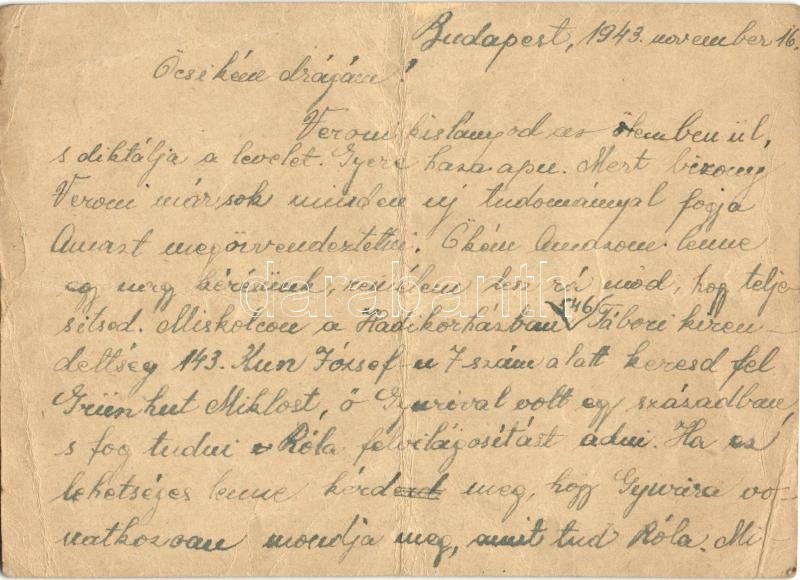 Budapest, 1943. november 16.
Öcsikém drágám!
Veroni kislányod az ölemben ül,
s diktálja a levelet. Gyere haza apu. Mert bizony
Veroni már sok minden uj tudománnyal fogja
megörvendeztetni. Ökém lenne
egy nagy kérésünk, remélem lesz rá mód, hogy telje-
sitsed. Miskolcon a Hadikorházban 546/Tábori kiren-
deltség 143. Kun József u 7 szám alatt keresd fel
Grünhut Miklóst, ő Gyurival volt egy században,
s fog tudni Róla felvilágositást adni. Ha ez
lehetséges lenne kérd meg, hogy Gyurira vo-
natkozóan mondja meg, amit tud Róla. Mi-
darabanth